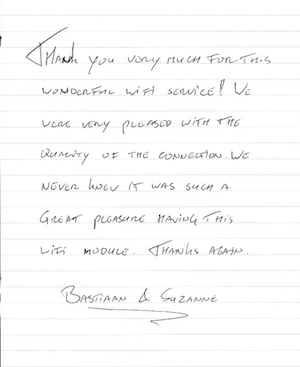 Thank you very much for this
wonderful wifi service! We
were very pleased with the
quality of the connection. We
never knew it was such a
great pleasure having this
wifi module. Thanks again.
Bastiaan & Suzanne